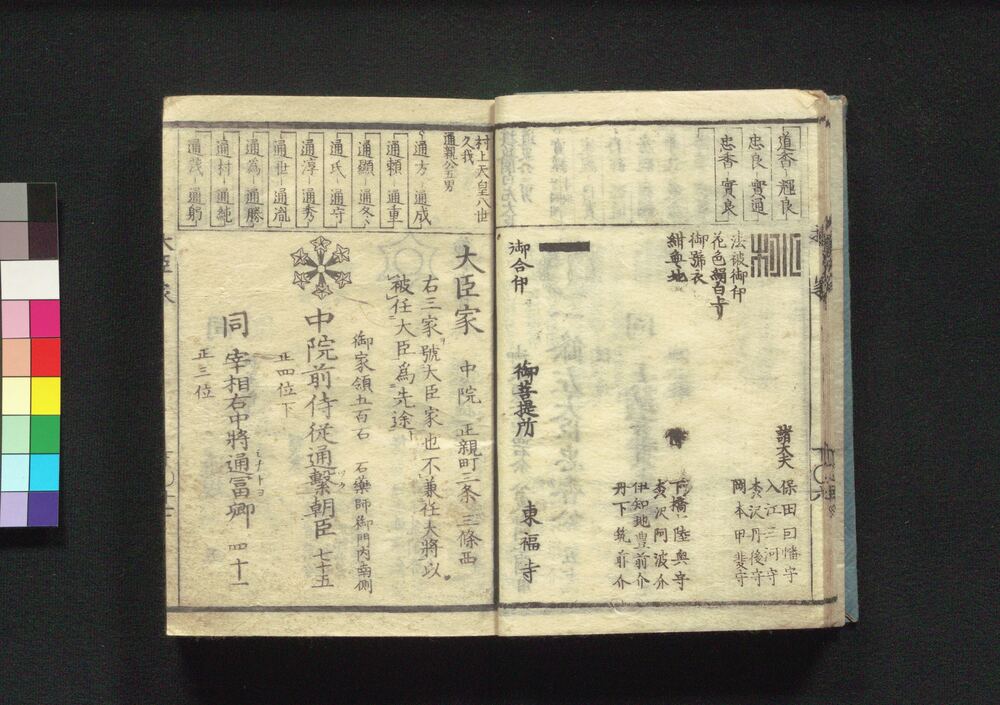 道香 輝良
忠良 實通
忠香 實良
法被御印
花色絹白上り
御號衣
紺無地
諸大夫
保田因幡守
入江三河守
木沢丹後守
岡本甲斐守
侍
下橋陸奥守
木沢阿波介
伊知地豊前介
丹下筑前介
御合印
御菩提所
東福寺
村上天皇八世
久我
通親公五男
通方 通成
通頼 通重
通顯 通冬
通氏 通守
通淳 通秀
通世 通胤
通為 通勝
通村 通純
通茂 通躬
大臣家
中院 正親町三条 三條西
右三家號大臣家也不兼任大將以
被任大臣為先途
御家領五百石 石薬師御門内南側
中院前侍従通繋朝臣 七十五
ツク
正四位下
同 宰相右中將通冨卿 四十一
ミチトヨ
正三位
大臣家